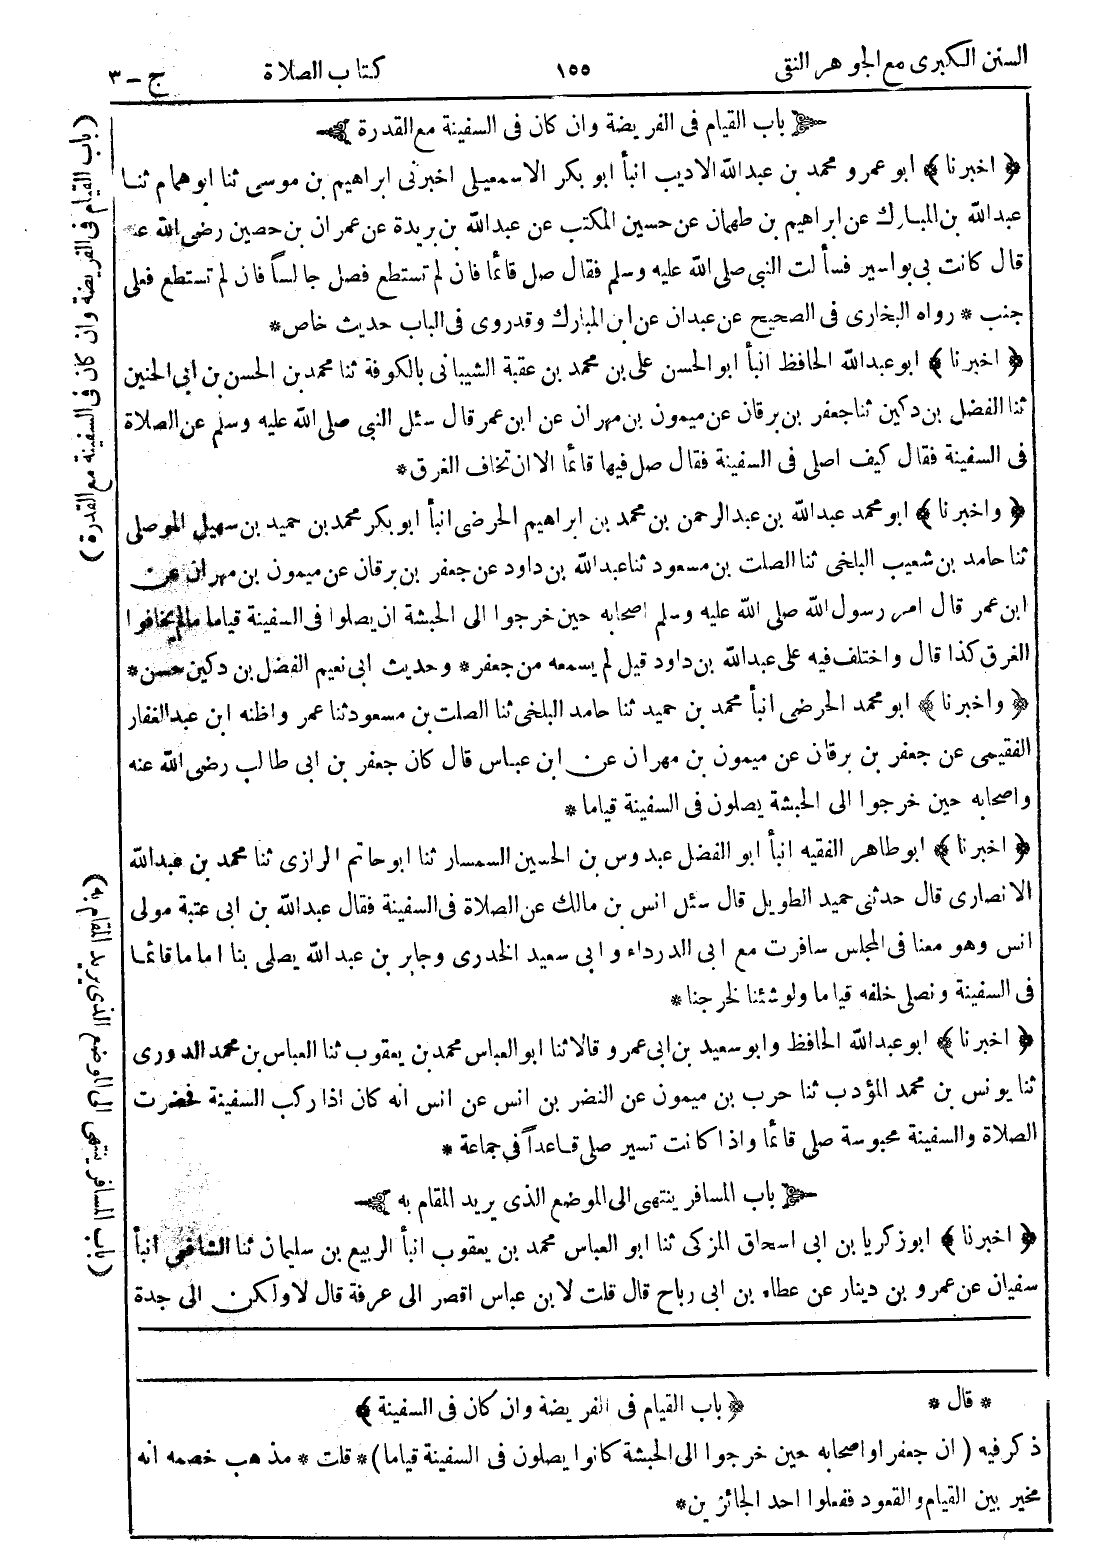 السنن الكبرى مع الجوهر النقى ١٥٥ كتاب الصلاة ج - ٣
باب القيام فى الفريضة وان كان فى السفينة مع القدرة
﴿ اخبرنا ﴾ ابو عمرو محمد بن عبدالله الاديب انبأ ابو بكر الاسمعيلى اخبرنى ابراهيم بن موسى ثنا ابو همام ثنا
عبدالله بن المبارك عن ابراهيم بن طهمان عن حسين المكتب عن عبدالله بن بريدة عن عمران بن حصين رضى الله عنه
قال كانت بى بواسير فسألت النبى صلى الله عليه وسلم فقال صل قائما فان لم تستطع فصل جالساً فان لم تستطع فعلى
جنب * رواه البخارى فى الصحيح عن عبدان عن ابن المبارك وقد روى فى الباب حديث خاص *
﴿ اخبرنا ﴾ ابو عبدالله الحافظ انبأ ابو الحسن على بن محمد بن عقبة الشيبانى بالكوفة ثنا محمد بن الحسن بن ابى الحنين
ثنا الفضل بن دكين ثنا جعفر بن برقان عن ميمون بن مهران عن ابن عمر قال سئل النبى صلى الله عليه وسلم عن الصلاة
فى السفينة فقال كيف اصلى فى السفينة فقال صل فيها قائما الا ان تخاف الغرق *
﴿ واخبرنا ﴾ ابو محمد عبدالله بن عبدالرحمن بن محمد بن ابراهيم الحرضى انبأ ابو بكر محمد بن حميد بن سهيل الموصلى
ثنا حامد بن شعيب البلخى ثنا الصلت بن مسعود ثنا عبدالله بن داود عن جعفر بن برقان عن ميمون بن مهران عن
ابن عمر قال امر رسول الله صلى الله عليه وسلم اصحابه حين خرجوا الى الحبشة ان يصلوا فى السفينة قياما مالم يخافوا
الغرق كذا قال واختلف فيه على عبدالله بن داود قيل لم يسمعه من جعفر * وحديث ابى نعيم الفضل بن دكين حسن *
﴿ واخبرنا ﴾ ابو محمد الحرضى انبأ محمد بن حميد ثنا حامد البلخى ثنا الصلت بن مسعود ثنا عمر واظنه ابن عبدالغفار
الفقيمى عن جعفر بن برقان عن ميمون بن مهران عن ابن عباس قال كان جعفر بن ابى طالب رضى الله عنه
واصحابه حين خرجوا الى الحبشة يصلون فى السفينة قياما *
﴿ اخبرنا ﴾ ابو طاهر الفقيه انبأ ابو الفضل عبدوس بن الحسين السمسار ثنا ابو حاتم الرازى ثنا محمد بن عبدالله
الانصارى قال حدثنى حميد الطويل قال سئل انس بن مالك عن الصلاة فى السفينة فقال عبدالله بن ابى عتبة مولى
انس وهو معنا فى المجلس سافرت مع ابى الدرداء وابى سعيد الخدرى وجابر بن عبد الله يصلى بنا اماما قائما
فى السفينة ونصلى خلفه قياما ولو شئنا لخرجنا *
﴿ اخبرنا ﴾ ابو عبدالله الحافظ وابو سعيد بن ابى عمرو قالا ثنا ابو العباس محمد بن يعقوب ثنا العباس بن محمد الدورى
ثنا يونس بن محمد المؤدب ثنا حرب بن ميمون عن النضر بن انس عن انس انه كان اذا ركب السفينة فحضرت
الصلاة والسفينة محبوسة صلى قائما واذا كانت تسير صلى قاعداً فى جماعة *
باب المسافر ينتهى الى الموضع الذى يريد المقام به
﴿ اخبرنا ﴾ ابو زكريا بن ابى اسحاق المزكى ثنا ابو العباس محمد بن يعقوب انبأ الربيع بن سليمان ثنا الشافعى انبأ
سفيان عن عمرو بن دينار عن عطاء بن ابى رباح قال قلت لابن عباس اقصر الى عرفة قال لا ولكن الى جدة
* قال * ﴿ باب القيام فى الفريضة وان كان فى السفينة ﴾
ذكر فيه ( ان جعفر او اصحابه حين خرجوا الى الحبشة كانوا يصلون فى السفينة قياما ) * قلت * مذهب خصمه انه
مخير بين القيام والقعود ففعلوا احد الجائزين *
( باب القيام فى الفريضة وان كان فى السفينة مع القدرة )
( باب المسافر ينتهى الى الموضع الذى يريد المقام به )